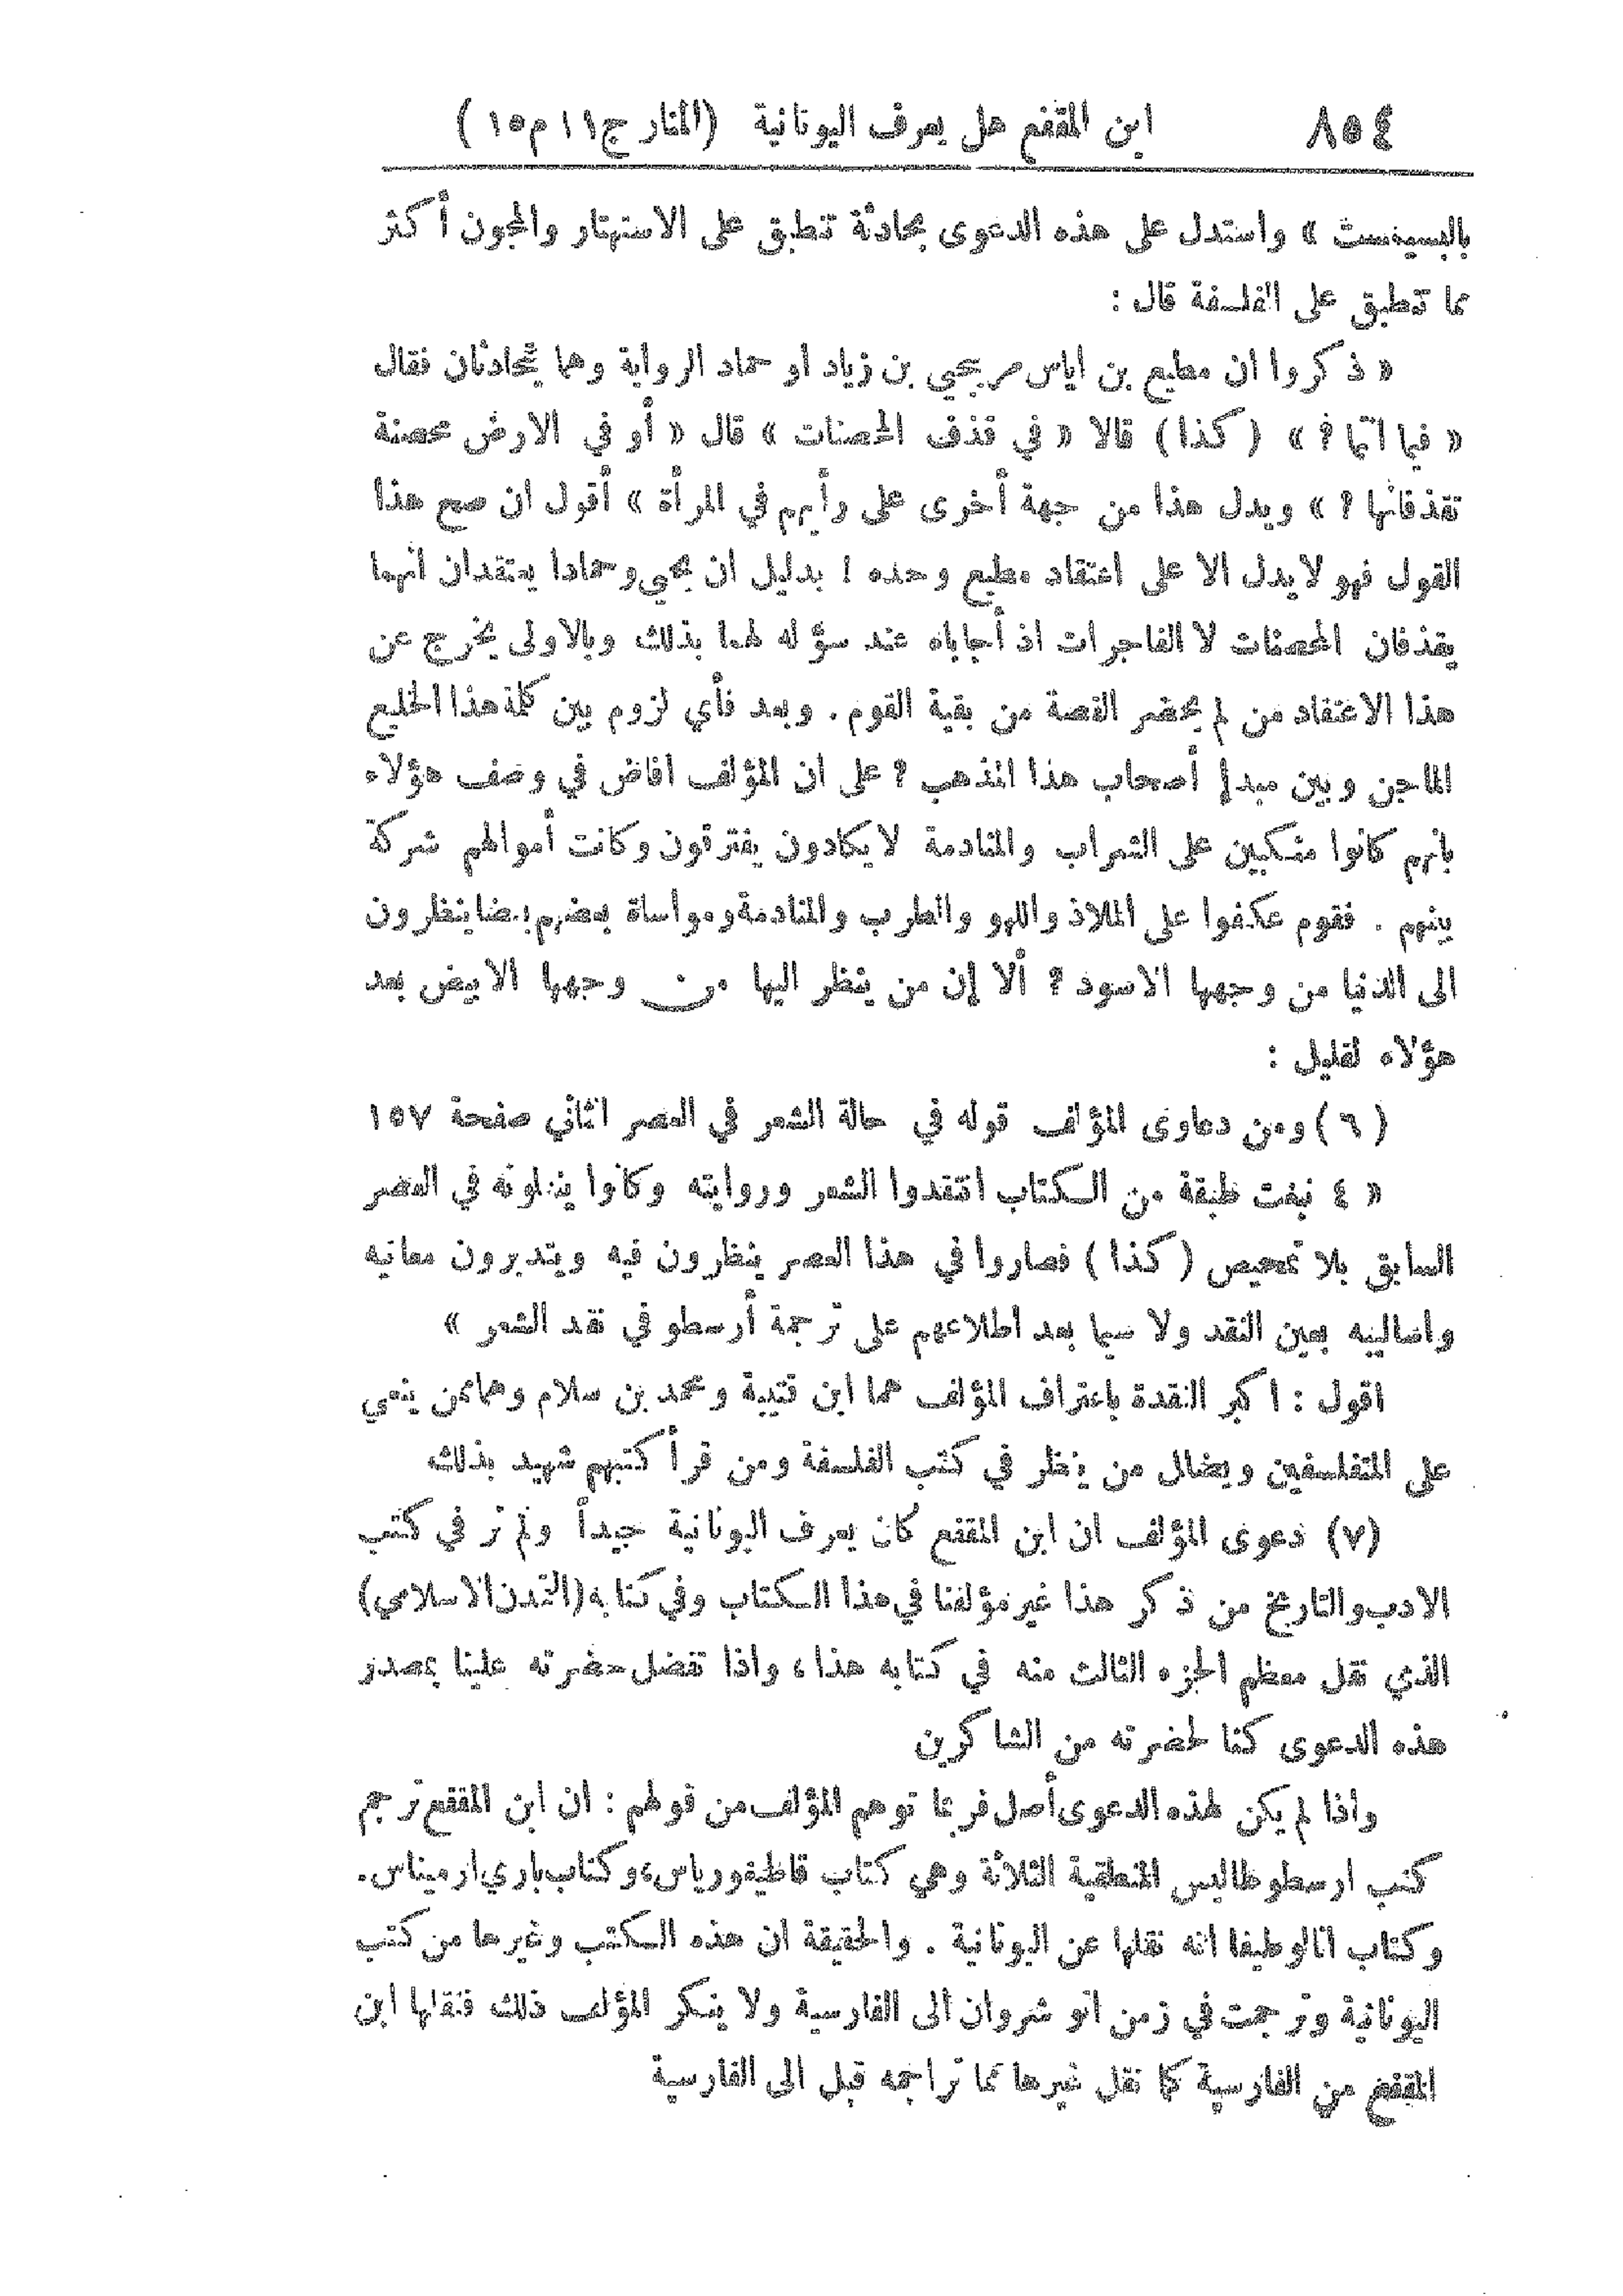 ٨٥٤ ابن المقفع هل يعرف اليونانية (المنار ج ١١ م ١٥)
بالبسيمست » واستدل على هذه الدعوى بحادثة تنطبق على الاستهتار والمجون أكثر
مما تنطبق على الفلسفة قال :
« ذكروا ان مطيع بن اياس مر بيحيى بن زياد او حماد الرواية وهما يتحادثان فقال
« فيما انتما ؟ » ( كذا ) قالا « في قذف المحصنات » قال « أو في الارض محصنة
تقذفانها ؟ » ويدل هذا من جهة أخرى على رأيهم في المرأة » أقول ان صح هذا
القول فهو لا يدل الا على اعتقاد مطيع وحده ! بدليل ان يحيى وحمادا يعتقدان انهما
يقذفان المحصنات لا الفاجرات اذ أجاباه عند سؤله لهما بذلك وبالاولى يخرج عن
هذا الاعتقاد من لم يحضر القصة من بقية القوم . وبعد فأي لزوم بين كلمة هذا الخليع
الماجن وبين مبدإ أصحاب هذا المذهب ؟ على ان المؤلف افاض في وصف هؤلاء
بانهم كانوا منكبين على الشراب والمنادمة لا يكادون يفترقون وكانت أموالهم شركة
بينهم . فقوم عكفوا على الملاذ واللهو والطرب والمنادمة ومواساة بعضهم بعضا ينظرون
الى الدنيا من وجهها الاسود ؟ ألا إن من ينظر اليها من وجهها الابيض بعد
هؤلاء لقليل :
( ٦ ) ومن دعاوى المؤلف قوله في حالة الشعر في العصر الثاني صفحة ١٥٧
« ٤ نبغت طبقة من الكتاب انتقدوا الشعر وروايته وكانوا ينقلونه في العصر
السابق بلا تمحيص ( كذا ) فصاروا في هذا العصر ينظرون فيه ويتدبرون معانيه
واساليبه بعين النقد ولا سيما بعد اطلاعهم على ترجمة أرسطو في نقد الشعر »
اقول : اكبر النقدة باعتراف المؤلف هما ابن قتيبة ومحمد بن سلام وهما ممن ينعي
على المتفلسفين ويضلل من ينظر في كتب الفلسفة ومن قرأ كتبهم شهيد بذلك
(٧) دعوى المؤلف ان ابن المقفع كان يعرف اليونانية جيداً ولم نر في كتب
الادب والتاريخ من ذكر هذا غير مؤلفنا في هذا الكتاب وفي كتابه (التمدن الاسلامي)
الذي نقل معظم الجزء الثالث منه في كتابه هذا، واذا تفضل حضرته علينا بمصدر
هذه الدعوى كنا لحضرته من الشاكرين
واذا لم يكن لهذه الدعوى أصل فربما توهم المؤلف من قولهم : ان ابن المقفع ترجم
كتب ارسطوطاليس المنطقية الثلاثة وهي كتاب قاطيغورياس، وكتاب باري ارميناس.
وكتاب انالوطيقا انه نقلها عن اليونانية . والحقيقة ان هذه الكتب وغيرها من كتب
اليونانية وترجمت في زمن انو شروان الى الفارسية ولا ينكر المؤلف ذلك فنقلها ابن
المقفع من الفارسية كما نقل غيرها مما تراجمه قبل الى الفارسية